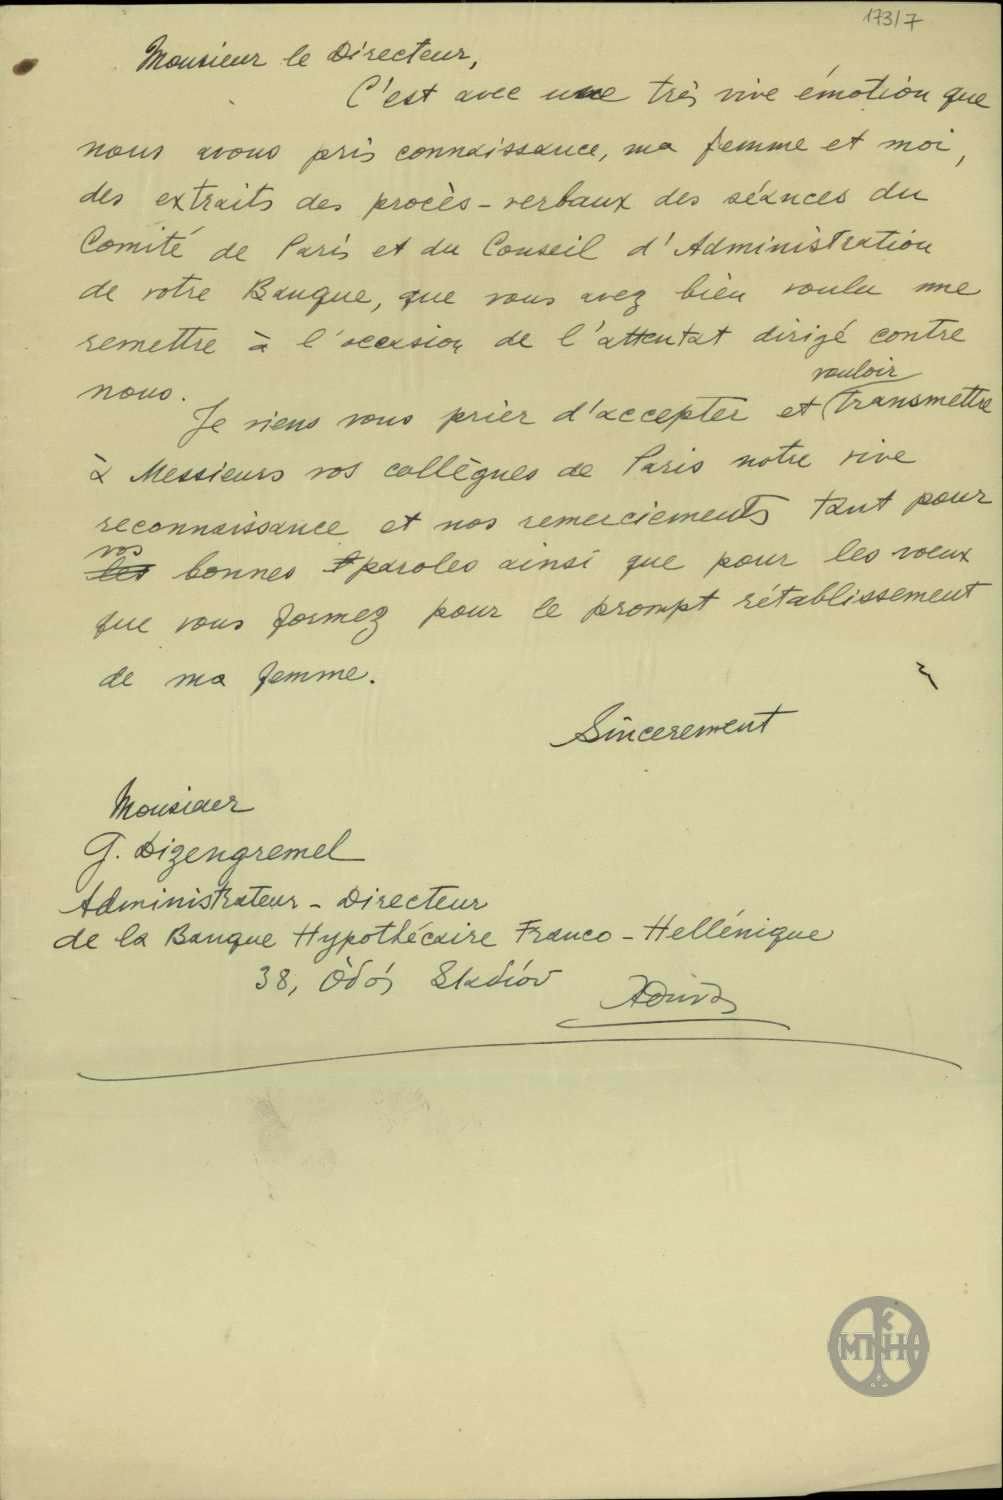 173/7
Monsieur le Directeur,
C'est avec une très vive émotion que
nous avons pris connaissance, ma femme et moi,
des extraits des procès-verbaux des séances du
Comité de Paris et du Conseil d'Administration
de votre Banque, que vous avez bien voulu me
remettre à l'occasion de l'attentat dirigé contre
nous.
vouloir
Je viens vous prier d'accepter et transmettre
à Messieurs vos collègues de Paris notre vive
reconnaissance et nos remerciements tant pour
vos
les bonnes paroles ainsi que pour les voeux
que vous formez pour le prompt rétablissement
de ma femme.
Sincerement
Monsieur
G. Dizengremel
Administrateur - Directeur
de la Banque Hypothécaire Franco - Hellénique
38, Ὁδός Σταδίου
Ἀθήνας
ΜΠΗ